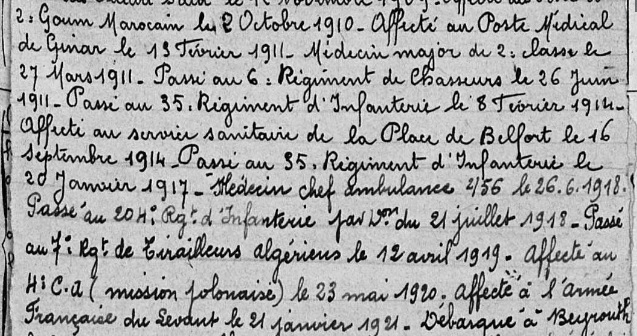 2: Goum Marocain le 2 Octobre 1910_ Affecté au Poste Médical
de Guiar le 13 Février 1911_ Médecin major de 2: classe le
27 Mars 1911_ Passé au 6: Régiment de Chasseurs le 26 Juin
1911_ Passé au 35. Régiment d'Infanterie le 8 Février 1914_
Affecté au service sanitaire de la Place de Belfort le 16
Septembre 1914_ Passé au 35. Régiment d'Infanterie le
20 Janvier 1917_ Médecin chef ambulance 2/56 le 26.6.1918.
Passé au 204e Rgt d'Infanterie par Don du 21 juillet 1918_ Passé
au 7e Rgt de Tirailleurs algériens le 12 avril 1919_ Affecté au
4e C.A (mission polonaise) le 23 mai 1920. Affecté à l'Armée
Française du Levant le 21 janvier 1921_ Débarqué à Beyrouth